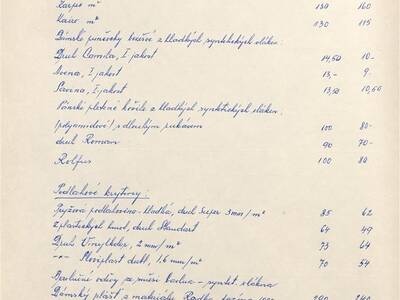 Karpo m² 130 160
Kairo m² 130 115
Dámské punčochy bezešvé z hladkých syntetických vláken:
Druh Camila, I jakost 14,50 10.-
Ivena, I jakost 13,- 9.-
Saxona, I jakost 13,50 10,50
Pánské pletené košile z hladkých syntetických vláken
(polyamidové) s dlouhým rukávem
100 80-
druh Roman 90 70-
Rolfus 100 80
Podlahové krytiny:
Pryžová podlahovina - hladká, druh Super 3mm/m² 85 62
Z plastických hmot, druh Standart 64 49
Druh Vinylkolor, 2 mm/m² 73 64
-"- Flexiplast dukl, 1,6 mm/m² 70 54
oděvy ze směsi - syntet. vlákna
Dámský plášť z materiálu